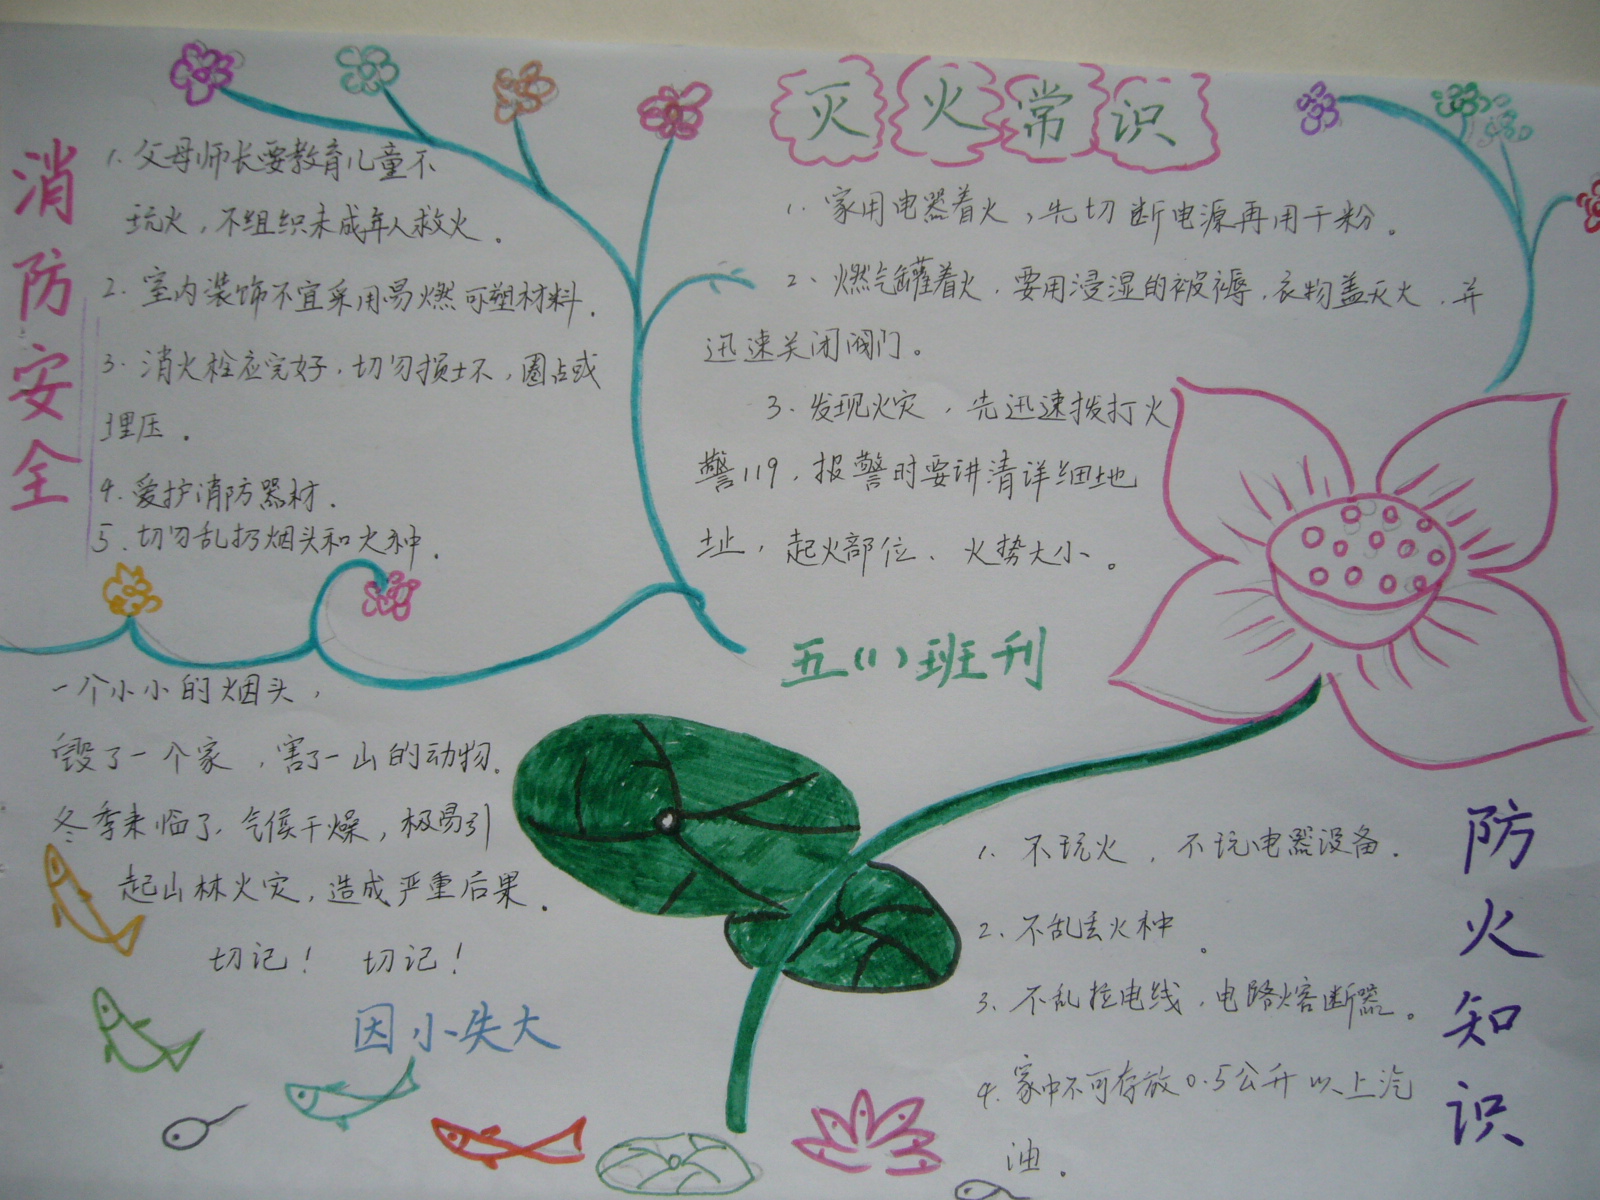 消防安全
1. 父母师长要教育儿童不
玩火，不组织未成年人救火。
2. 室内装饰不宜采用易燃可塑材料.
3. 消火栓应完好，切勿损坏，圈占或
埋压。
4. 爱护消防器材.
5. 切勿乱扔烟头和火种.
灭火常识
1. 家用电器着火，先切断电源再用干粉.
2、燃气罐着火，要用浸湿的被褥，衣物盖灭火，并
迅速关闭阀门。
3、发现火灾，先迅速拨打火
警119，报警时要讲清详细地
址，起火部位、火势大小。
五(1)班刊
一个小小的烟头，
毁了一个家，害了一山的动物.
冬季来临了，气候干燥，极易引
起山林火灾，造成严重后果.
切记！ 切记！
因小失大
防火知识
1、不玩火，不玩电器设备.
2、不乱丢火种。
3、不乱拉电线，电路熔断器。
4. 家中不可存放0.5公升以上汽
油.